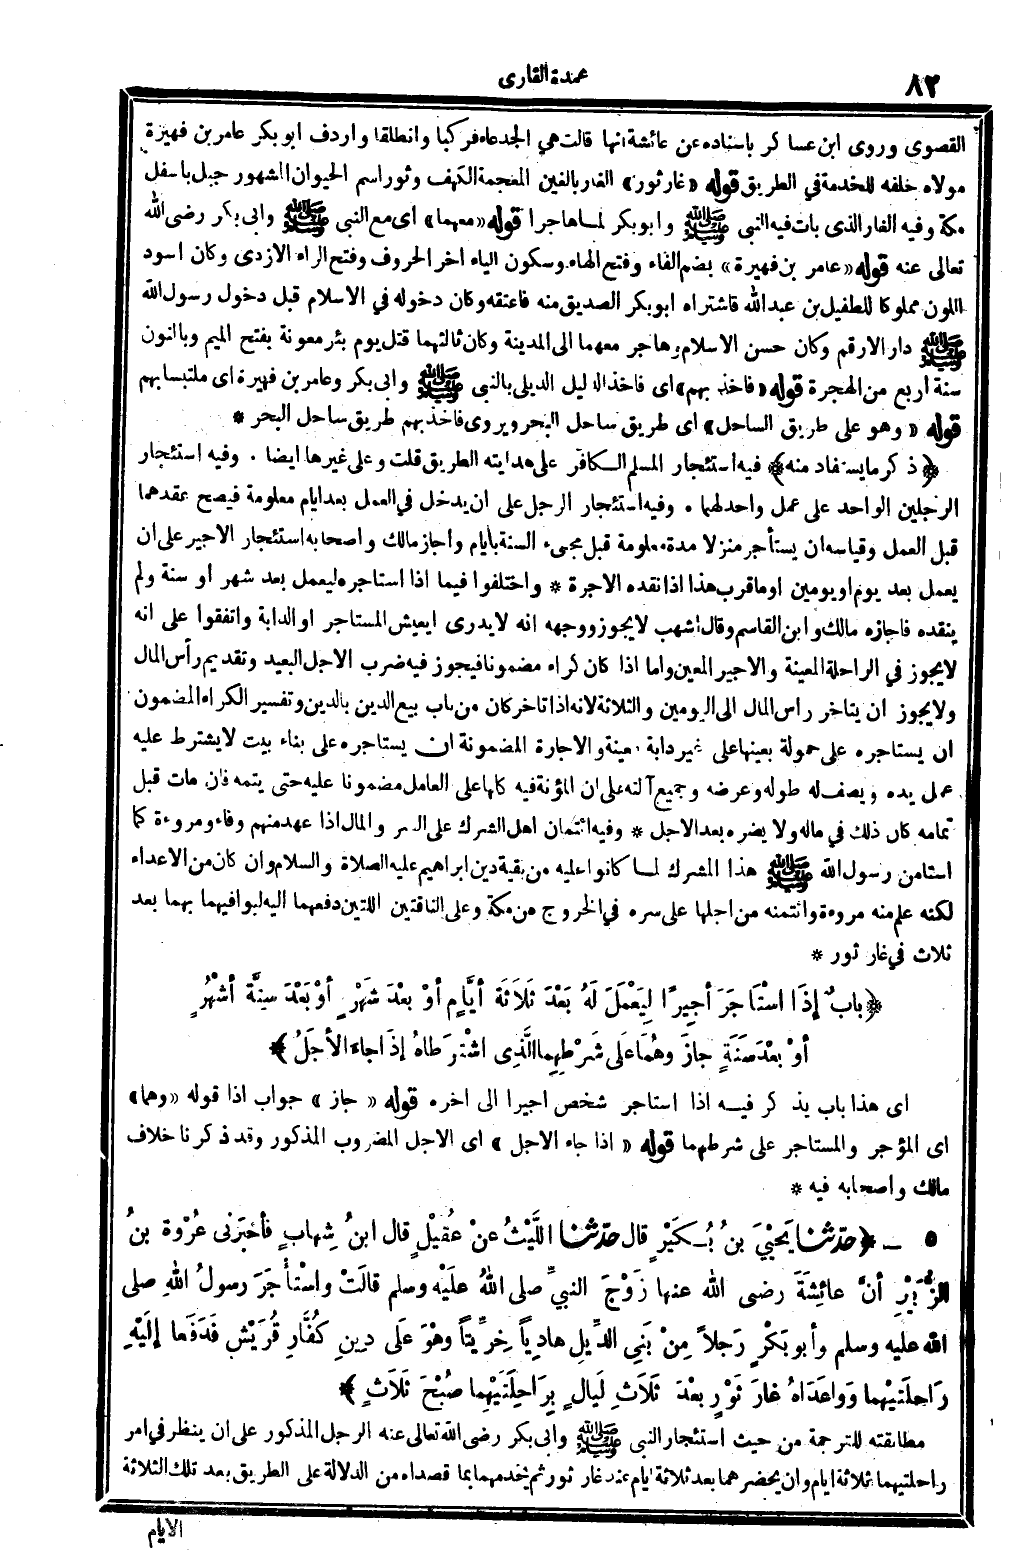 ٨٢
عمدة القارى
القصوى وروى ابن عساكر باسناده عن عائشة انها قالت هي الجدعاء فركبا وانطلقا واردف ابو بكر عامر بن فهيرة
مولاه خلفه للخدمة في الطريق قوله «غار ثور» الغار بالغين المعجمة الكهف وثور اسم الحيوان المشهور جبل باسفل
مكة وفيه الغار الذى بات فيه النبى ﷺ وابو بكر لما هاجرا قوله «معهما» اى مع النبى ﷺ وابى بكر رضى الله
تعالى عنه قوله «عامر بن فهيرة» بضم الفاء وفتح الهاء وسكون الياء اخر الحروف وفتح الراء الازدى وكان اسود
اللون مملوكا للطفيل بن عبد الله فاشتراه ابو بكر الصديق منه فاعتقه وكان دخوله في الاسلام قبل دخول رسول الله
ﷺ دار الارقم وكان حسن الاسلام وهاجر معهما الى المدينة وكان ثالثهما قتل يوم بئر معونة بفتح الميم وبالنون
سنة اربع من الهجرة قوله «فاخذ بهم» اى فاخذ الدليل الديلى بالنبى ﷺ وابى بكر وعامر بن فهيرة اى ملتبسا بهم
قوله «وهو على طريق الساحل» اى طريق ساحل البحر ويروى فاخذ بهم طريق ساحل البحر *
﴿ذكر ما يستفاد منه﴾ فيه استئجار المسلم الكافر على هدايته الطريق قلت وعلى غيرها ايضا . وفيه استئجار
الرجلين الواحد على عمل واحد لهما . وفيه استئجار الرجل على ان يدخل في العمل بعد ايام معلومة فيصح عقدهما
قبل العمل وقياسه ان يستأجر منزلا مدة معلومة قبل مجىء السنة بأيام وأجاز مالك واصحابه استئجار الاجير على ان
يعمل بعد يوم او يومين او ما قرب هذا اذا نقده الاجرة * واختلفوا فيما اذا استاجره ليعمل بعد شهر او سنة ولم
ينقده فاجازه مالك وابن القاسم وقال اشهب لا يجوز ووجهه انه لا يدرى ايعيش المستاجر او الدابة واتفقوا على انه
لا يجوز في الراحلة المعينة والاجير المعين واما اذا كان كراء مضمونا فيجوز فيه ضرب الاجل البعيد وتقديم رأس المال
ولا يجوز ان يتاخر رأس المال الى اليومين والثلاثة لانه اذا تاخر كان من باب بيع الدين بالدين وتفسير الكراء المضمون
ان يستاجره على حمولة بعينها على غير دابة معينة والاجارة المضمونة ان يستاجره على بناء بيت لا يشترط عليه
عمل يده ويصف له طوله وعرضه وجميع آلته على ان المؤنة فيه كلها على العامل مضمونا عليه حتى يتمه فان مات قبل
تمامه كان ذلك في ماله ولا يضره بعد الاجل * وفيه ائتمان اهل الشرك على السر والمال اذا عهد منهم وفاء ومروءة كما
استامن رسول الله ﷺ هذا المشرك لما كانوا عليه من بقية دين ابراهيم عليه الصلاة والسلام وان كان من الاعداء
لكنه علم منه مروءة وائتمنه من اجلها على سره في الخروج من مكة وعلى الناقتين اللتين دفعهما اليه ليوافيهما بهما بعد
ثلاث في غار ثور *
﴿بابٌ إِذَا اسْتَأجَرَ أجِيرًا لِيَعْمَلَ لَهُ بَعْدَ ثَلَاثَة أيَّامٍ أوْ بعْدَ شَهْرٍ أوْ بَعْدَ سِتَّة أشْهُرٍ
أوْ بعْدَ سَنَةٍ جازَ وهُمَا عَلَى شَرْطِهِما الَّذِى اشْتَرَطَاهُ إذَا جاءَ الأجَلُ﴾
اى هذا باب يذكر فيه اذا استاجر شخص اجيرا الى اخره قوله «جاز» جواب اذا قوله «وهما»
اى المؤجر والمستاجر على شرطهما قوله «اذا جاء الاجل» اى الاجل المضروب المذكور وقد ذكرنا خلاف
مالك واصحابه فيه *
٥ ــ ﴿حدّثنا يَحْيَى بنُ بُـكَيْرٍ قال حدّثنا اللَّيْثُ عنْ عُقَيْلٍ قال ابنُ شِهابٍ فأخبَرَنى عُرْوة بنُ
الزُّبَيْرِ أنَّ عائِشَةَ رضى الله عنها زَوْجَ النبيِّ صلى اللهُ علَيْهِ وسلم قالَتْ واسْتأجَرَ رسولُ اللهِ صلى
الله عليه وسلم وأبو بَكْرٍ رَجلاً مِنْ بَنِي الدِّيلِ هادِياً خِرِّيتاً وهْوَ عَلَى دِينِ كُفَّارِ قُرَيْشٍ فَدَفَعا إِلَيْهِ
رَاحِلَتَيْهِما وَوَاعَدَاهُ غارَ ثَوْرٍ بعْدَ ثَلَاثِ لَيالٍ بِرَاحِلَتَيْهِما صُبْحَ ثَلَاثٍ﴾
مطابقته للترجمة من حيث استئجار النبى ﷺ وابى بكر رضى الله تعالى عنه الرجل المذكور على ان ينظر في امر
راحلتيهما ثلاثة ايام وان يحضرهما بعد ثلاثة ايام عند غار ثور ثم يخدمهما بما قصداه من الدلالة على الطريق بعد تلك الثلاثة
الايام